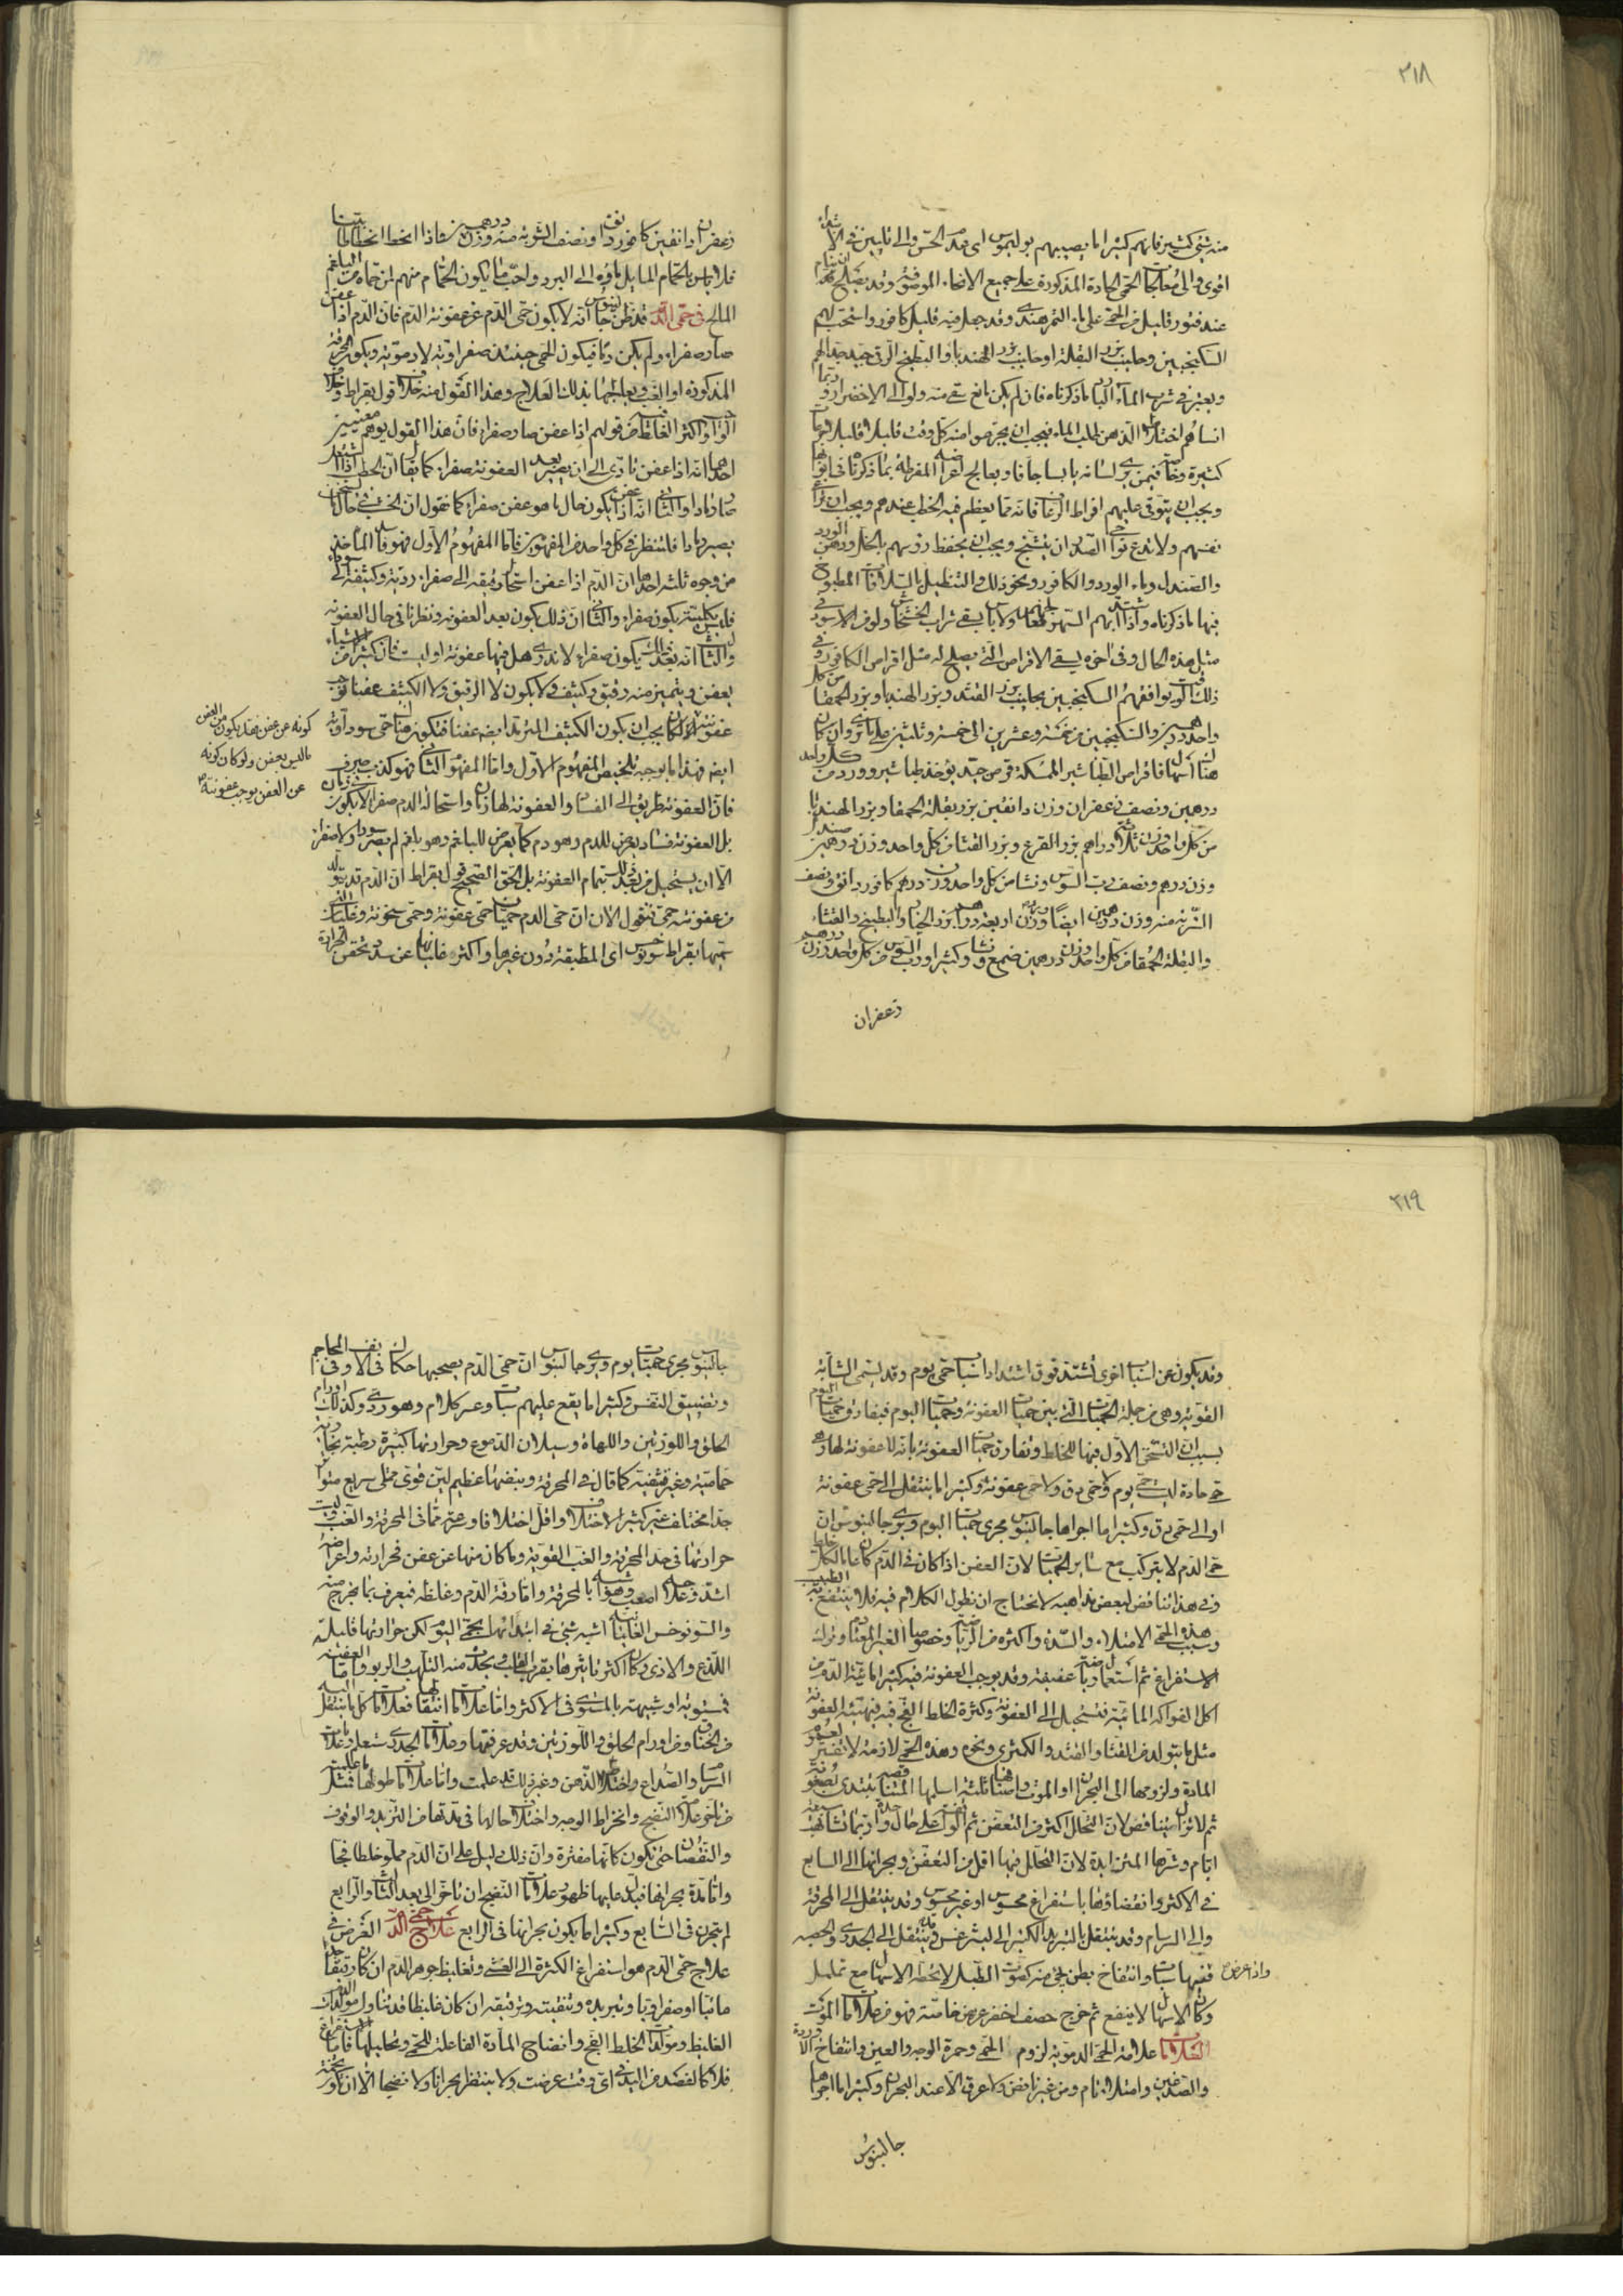 ٣١٨
منه شئ كثير فانهم كثيرا ما يصيبهم بوليموس اى فقد الحس والى تايين فى الابتداء
اقوى والى معالجات الحمى الحادة المذكورة على جميع الانحاء الموصوفة وقد يصلح ان ينام
عند فتور قليل من الحمى على ماء التمر هندى وقد جعل فيه قليل كافور واستحب لهم
السكنجبين وحليب بزر البقلة او حليب بزر الهندبا والبطيخ الرقى جيد جدا لهم
ويعتبر فى شرب الماء البارد ما ذكرناه فان لم يكن مانع سقى منه ولو الى الاخضرار وربما
انساهم اختلاط الذهن طلب الماء فيجب ان يجرعوا منه كل وقت قليلا قليلا جرعات
كثيرة وخاصة فيمن يرى لسانه يابسا جافا ويعالج اعراضه المفرطة بما ذكرناه فى ابوابها
ويجب ان يتوقى عليهم افراط الرعاف فانه مما يعظم فيه الخطب عندهم ويجب ان يراعى
نفسهم ولا تدع نواحى الصدر ان يتشنج ويجب ان يحفظ رؤسهم بالخل ودهن الورد
والصندل وماء الورد والكافور ونحو ذلك والتنطيل بالسلاقات المطبوخ
فيها ما ذكرناه واذا اشتد بهم السهر فعالجهم ولا باس بسقى شراب الخشخاش ولو من الاسود فى
مثل هذه الحال وفى اخره يسقى الاقراص التى يصلح له مثل اقراص الكافور وفى
ذلك الوقت يوافقهم السكنجبين بحليب بزر القثد وبزر الهندبا وبزر الحمقا من كل
واحد درهمين والسكنجبين من خمسة وعشرين الى خمسة وثلثين على ما ترى وان كان
هناك اسهال فاقراص الطباشير الممسكة قرص جيد يوخذ طباشير وورد من كل واحد
درهمين ونصف زعفران وزن دانقين بزر بقلة الحمقا وبزر الهندبا
من كل واحد وزن ثلاثة دراهم بزر القرع وبزر القثا من كل واحد وزن درهمين صندل
وزن درهم ونصف رب السوس ونشا من كل واحد وزن درهم كافور دانق ونصف
الشربة منه وزن درهمين ايضا ورد وزن اربعة دراهم بزر الخيار والبطيخ والقثاء
والبقلة الحمقا من كل واحد وزن درهمين صمغ ونشا وكثيرا ورب السوس من كل واحد وزن درهم
زعفران
زعفران دانقين كافور دانق ونصف الشربة منه وزن درهمين واذا انحط انحطاطا بينا
فلا باس بالحمام المايل ماؤه الى البرد واحب ما يكون الحمام منهم لمن حماه من البلغم
المالح فى حمى الدم قد ظن جالينوس انه لا يكون حمى الدم عن عفونة الدم فان الدم اذا عفن
صار صفراء ولم يكن دما فيكون الحمى حينئذ صفراوية لا دموية ويكون المحرقة
المذكورة او الغب ويعالجها بذلك العلاج وهذا القول منه خلاف قول بقراط وخلاف
الواجب واكثر الغلط فيه من قولهم اذا عفن صار صفراء فان هذا القول يوهم معنيين
احدهما انه اذا عفن تادى الى ان يصير بعد العفونة صفراء كما يقال ان الحطب اذا اشتعل
صار رمادا والثانى انه اذا عفن يكون حال ما هو عفن صفراء كما تقول ان الخشب فى حال تسخن
يصير نارا فلننظر فى كل واحد من المفهومين فاما المفهوم الاول فهو فاسد الماخذ
من وجوه ثلثه احدها ان الدم اذا عفن استحال رقيقه الى صفراء ردية وكثيفه الى سوداء
فليس بكليته يكون صفراء والثانى ان ذلك يكون بعد العفونة ونظرنا فى حال العفونة
والثالث انه بعد ذلك يكون صفراء لا ندرى هل فيها عفونة او ليست فان كثيرا من الاشياء
يعفن ويتميز منه رقيق وكثيف ولا يكون لا الرقيق ولا الكثيف عفنا بوجب
عفونته الا لكان يجب ان يكون الكثيف المترمد ايضا عفنا فتكون هناك حمى سوداوية
ايضا فهذا ما يوجبه تلخيص المفهوم الاول واما المفهوم الثانى فهو كذب صرف
فان العفونة طريق الى الفساد والعفونة لها زمان واستحالة الدم صفراء لا يكون فى زمان
بل العفونة فساد يعرض للدم وهو دم كما يعرض للبلغم وهو بلغم لم يصر سوداء ولا صفراء
الا ان يستحيل من بعد ذلك بتمام العفونة بل الحق الصحيح قول بقراط ان الدم قد يتولد
من عفونته حمى فنقول الان ان حمى الدم حميان حمى عفونة وحمى سخونة وغليان التى
يسميها بقراط سونوخس اى المطبقة دون غيرها واكثر غليانها عن سدد تحقن الحرارة
كونه عن عفن فقد يكون من العفن
ما ليس بعفن ولو كان كونه
عن العفن يوجب عفونته
٣١٩
وقد يكون عن اسباب اخرى أشتد فوق اشتداد اسباب حمى يوم وقد تسمى الشابة
القوية وهى من جملة الحميات التى بين حميات العفونة وحميات اليوم فيفارق حميات اليوم
بسبب ان التسخن الاول فيها للخلط وتفارق حميات العفونة بانه لا عفونة لها وهى
حمى حادة ليست حمى يوم ولا حمى دق ولا حمى عفونة وكثيرا ما ينتقل الى حمى عفونة
او الى حمى دق وكثيرا ما اجراها جالينوس مجرى حميات اليوم ويرى جالينوس ان
حمى الدم لا يتركب مع سائر الحميات لان العفن اذا كان فى الدم كان عاما لكل خلط
وفى هذا تناقض لبعض مذاهبه لا نحتاج ان نطول الكلام فيه فلا ينتفع به الطبيب
وسبب هذه الحمى الامتلاء والسدة واكثره من الرياضة وخصوصا الغير المعتادة وترك
الاستفراغ ثم استعمال رياضة عنيفة وقد يوجب العفونة فيه كثيرا مائية الدم من
اكل الفواكه المائية فتستحيل الى العفونة وكثرة الخلط الفج فيه فيهيئه العفونة
مثل ما يتولد من القثا والقثد والكمثرى ونحوه وهذه الحمى لازمة لا تفتر لعموم
المادة ولزومها الى البحران او الموت واصنافها ثلثة اسلمها المتناقصة يبتدى بصعوبة
ثم لا يزال يتناقص لان التحلل اكثر من التعفن ثم الواقفة على حال واحدة وربما تشابهت سبعة
ايام وشرها المتزايدة لان التحلل فيها اقل من التعفن وبحرانها الى السابع
فى الاكثر وانقضاؤها باستفراغ محسوس او غير محسوس وقد ينتقل الى المحرقة
والى السرسام وقد ينتقل بالتبريد الكثير الى ليثرغس وقد ينتقل الى الجدرى والحصبة
واذا عرض
ففيها سبات وانتفاخ بطن يجئ منه كصوت الطبل لا يحطه الاسهال مع تململ
وكان الاسهال لا ينفع ثم خرج حصف اخضر عريض خاصة فهو من علامات الموت
العلامات علامة الحمى الدموية لزوم الحمى وحمرة الوجه والعين وانتفاخ الاوردة
والصدغين وامتلاء تام ومن غير نافض ولا عرق الا عند البحران وكثيرا ما اجراها
جالينوس
جالينوس مجرى حميات يوم ويرى جالينوس ان حمى الدم يصحبها حكاك فى الانف وفى المحاجم
وتضييق النفس وكثيرا ما يقع عليهم سبات وعسر كلام وهو ردى وكذلك اورام
الحلق واللوزتين واللهاة وسيلان الدموع وحرارتها كثيرة رطبة بخارية
حمامية وغير قشفة كما قال فى المحرقة ونبضها عظيم لين قوى ممتلى سريع متواتر
جدا مختلف غير كثير الاختلاف واقل اختلافا وسرعة مما فى المحرقة والغب وليست
حرارتها فى حد المحرقة والغب القوية وما كان منها عن عفن فحرارته واعراضه
اشد وعلاجه اصعب وهو اشبه بالمحرقة واما رقة الدم وغلظه فيعرف بما يخرج منه
والسونوخس الغليانية اشبه شئ فى ابتدائها بحمى اليوم لكن حرارتها قليلة
اللذع والاذى وكان اكثر تاثيرها بقرب القلب ويحدث منه التلهب والربو واما العفنية
فمستوية او شبيهة بالمستوى فى الاكثر واما علامات انتقالها فعلامات كل ما ينتقل اليه
من الخناق ومن اورام الحلق واللوزتين وقد عرفتها وعلامات الجدرى ستعلم وعلامات
السرسام والصداع واختلاط الذهن وغير ذلك قد علمت واما علامات طولها فمثل ما علمت
من تاخر علامات النضج وانخراط الوجه واختلاف حالها فى مدتها من التزيد والوقوف
والنقصان حتى تكون كانها مفترة وان ذلك دليل على ان الدم مملو خلطا فجا
واما مدة بحرانها فيدل عليها ظهور علامات النضج ان تاخر الى بعد الثالث والرابع
لم يتحرن فى السابع وكثيرا ما يكون بحرانها فى الرابع علاج حمى الدم الغرض فى
علاج حمى الدم هو استفراغ الكثرة الى الغشى وتغليظ جوهر الدم ان كان رقيقا
مائيا او صفراويا وتبريده وتنقيته وترقيقه ان كان غليظا قد تناول مولدات الدم
الغليظ ومولدات الخلط الفج وانضاج المادة الفاعلة للحمى وتحليلها فاما الاستفراغ
فلا كالفصد من اليد فى اى وقت عرضت ولا ينتظر بحرانا ولا نضجا الا ان يكون تخمة